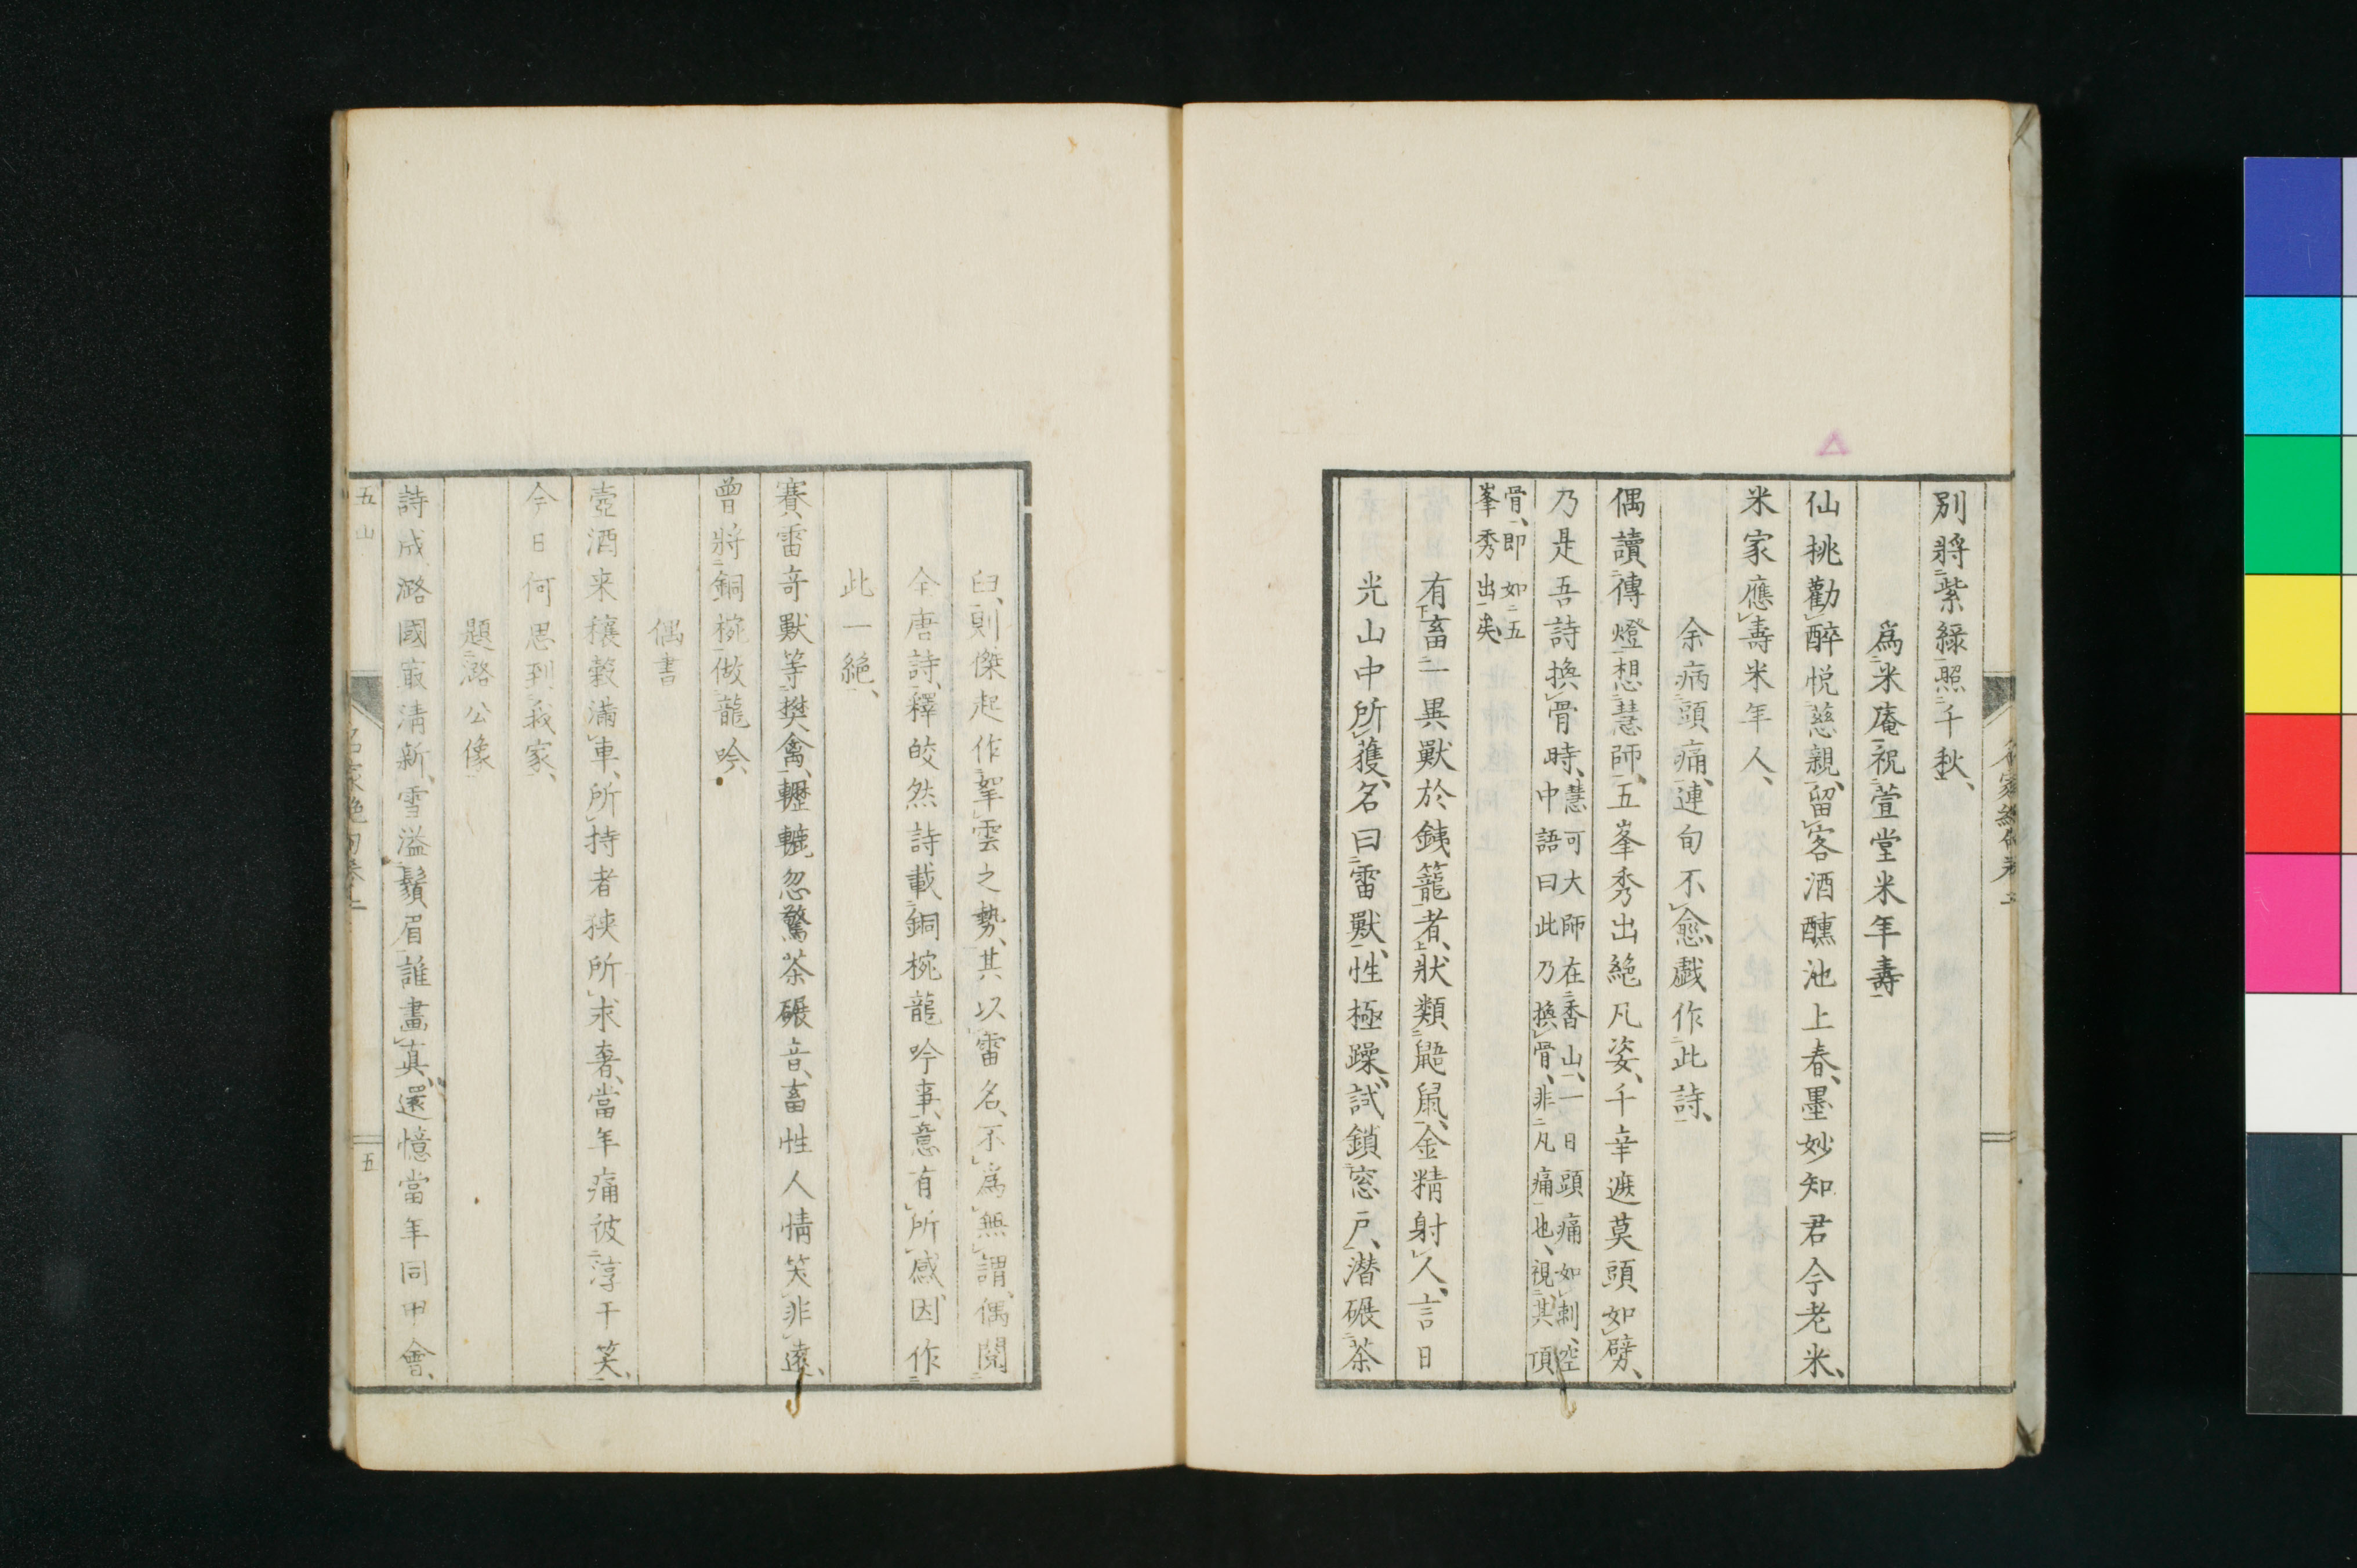 別將紫綠照千秋
爲米庵祝萱堂米年壽
仙桃勸醉悦慈親留客酒醺池上春墨妙知君今老米
米家應壽米年人
余病頭痛連旬不愈戯作此詩
偶讀傳燈想慧師五峯秀出絕凡姿千辛遮莫頭如劈
乃是吾詩換骨時慧可大師在香山一日頭痛如刺空
中語曰此乃換骨非凡痛也視其頂
骨即如五
峯秀出矣
有畜一異獸於銕籠者狀類鼯鼠金精射人言日
光山中所獲名曰雷獸性極躁試鎖窓戶潜碾茶
臼則傑起作挐雲之勢其以雷名不爲無謂偶閱
全唐詩釋皎然詩載銅椀龍吟事意有所感因作
此一絕
賽雷奇獸等樊禽轣轆忽驚茶碾音畜性人情笑非遠
曾將銅椀做龍吟
偶書
壺酒来穰穀滿車所持者狹所求奢當年痛被淳于笑
今日何思到我家
題潞公像
詩成潞國最清新雪溢鬚眉誰畫真還憶當年同甲會
五山
名家絶句卷
五